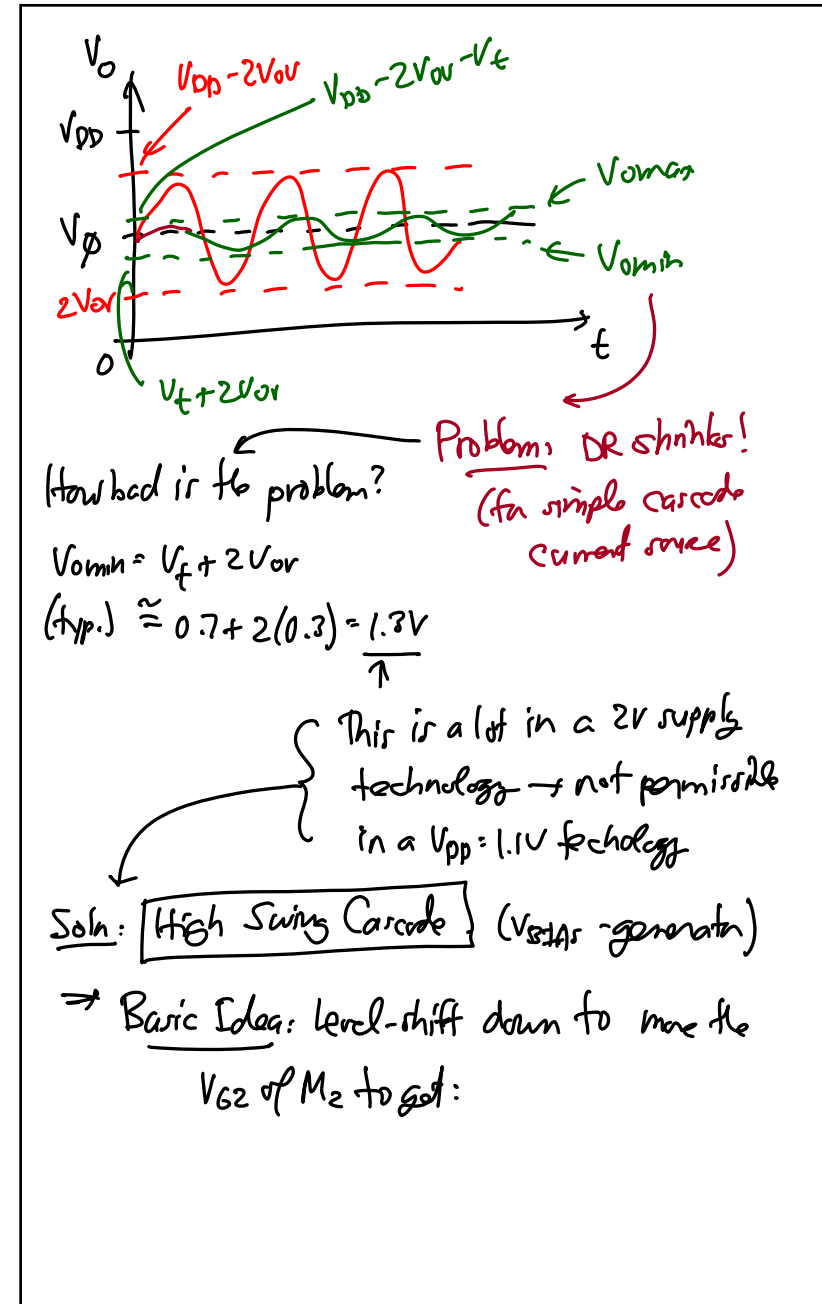 Vo
VDD - 2Vov
VDD - 2Vov - Vt
VDD
Vomax
VØ
Vomin
2Vov
0
t
Vt + 2Vov
Problem: DR shrinks!
(for simple cascode
current source)
How bad is the problem?
Vomin = Vt + 2Vov
(typ.) ≅ 0.7 + 2(0.3) = 1.3V
This is a lot in a 2V supply
technology → not permissible
in a VDD = 1.1V techology
Soln: High Swing Cascode (VBIAS -generator)
⇒ Basic Idea: Level-shift down to move the
VG2 of M2 to get: